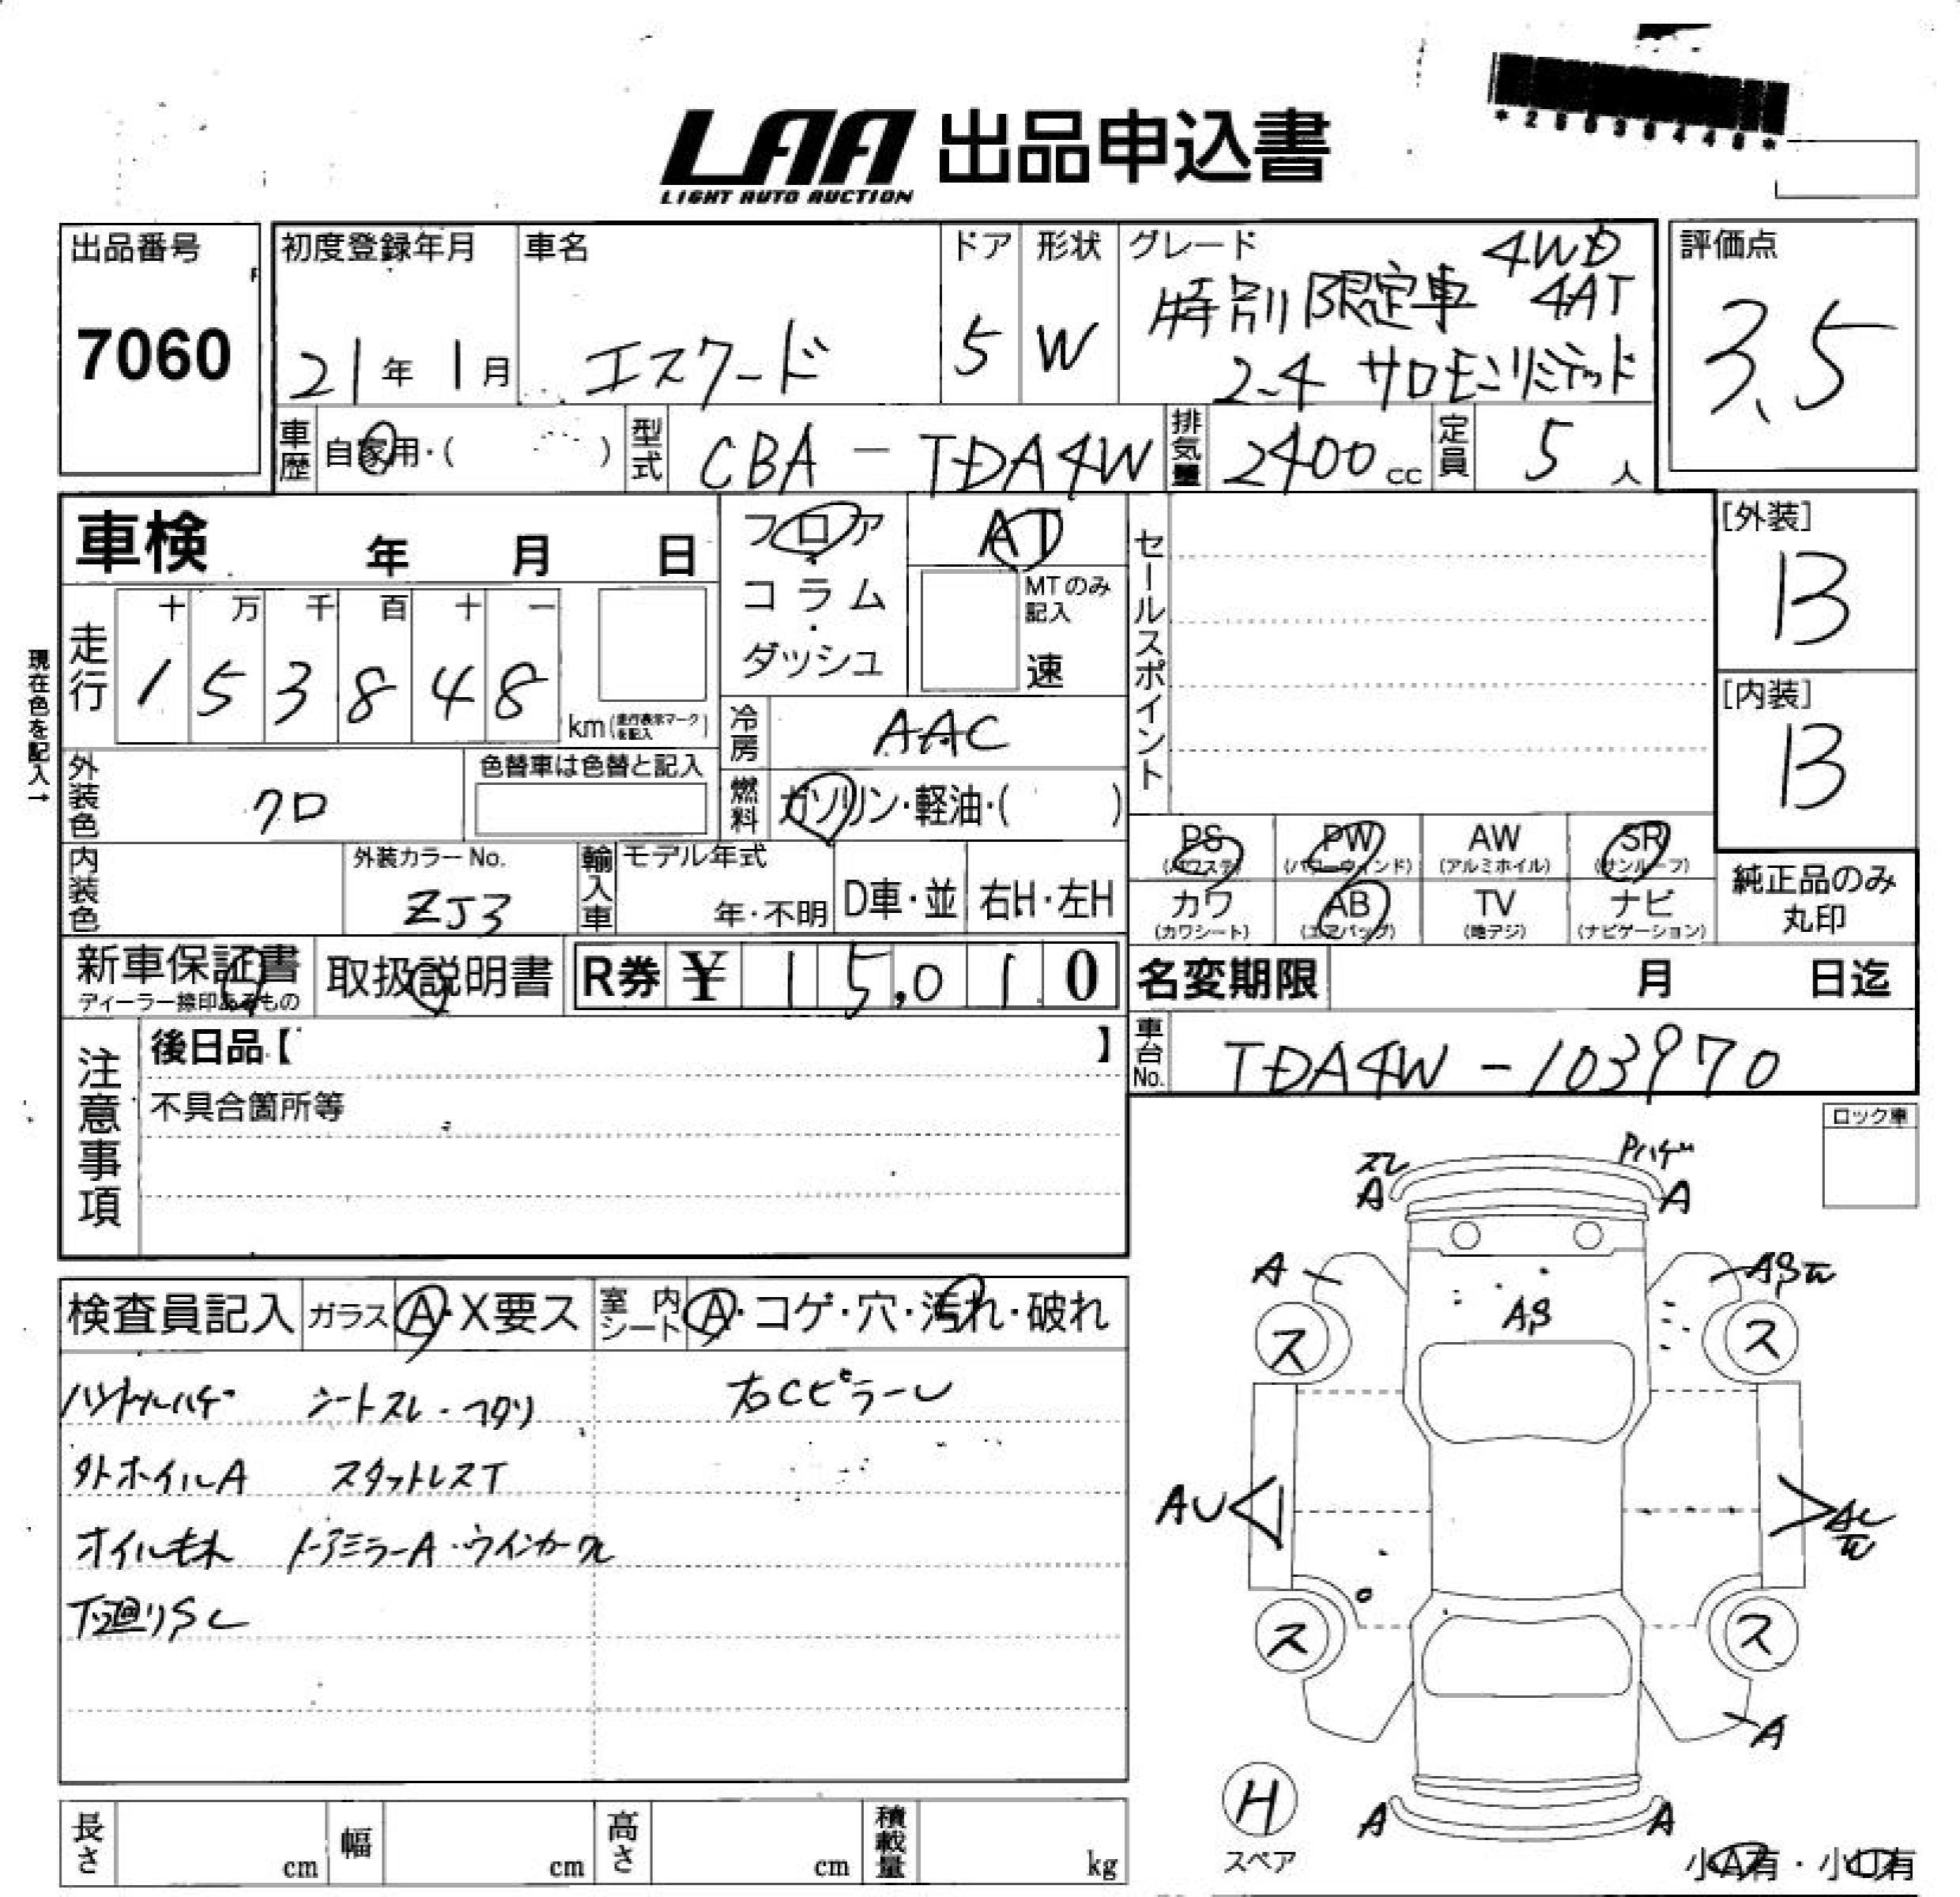 *26038448*
LAA 出品申込書
LIGHT AUTO AUCTION
出品番号
7060
初度登録年月
21年 1月
車名
エスクード
ドア
5
形状
W
グレード
4WD
特別限定車 4AT
2.4 サロモンリミテッド
評価点
3.5
車歴
自家用・( )
型式
CBA-TDA4W
排気量
2400cc
定員
5人
車検 年 月 日
フロア
・
コラム
・
ダッシュ
AT
MTのみ記入
速
セールスポイント
[外装]
B
[内装]
B
現在色を記入→
走行
十 万 千 百 十 一
1 5 3 8 4 8
km(走行表示マークを記入)
冷房
AAC
外装色
クロ
色替車は色替と記入
燃料
ガソリン・軽油・( )
内装色
外装カラーNo.
ZJ3
輸入車
モデル年式
年・不明
D車・並
右H・左H
PS
(パワステ)
PW
(パワーウィンド)
AW
(アルミホイル)
SR
(サンルーフ)
カワ
(カワシート)
AB
(エアバッグ)
TV
(地デジ)
ナビ
(ナビゲーション)
純正品のみ
丸印
新車保証書
ディーラー捺印あるもの
取扱説明書
R券 ¥ 15,010
名変期限 月 日迄
車台No.
TDA4W-103970
注意事項
後日品【 】
不具合箇所等
ロック車
検査員記入
ガラス
A・X要ス
室内シート
A・コゲ・穴・汚れ・破れ
ハンドルハゲ シートスレ・コゲ 右CピラーU
外ホイルA スタットレスT
オイルモレ ドアミラーA・ウインカーワレ
下廻りS
スレ
A
Pハゲ
A
A
AS
ス
ス
AU
ス
ス
A
H
スペア
A
A
小A有・小U有
長さ cm
幅 cm
高さ cm
積載量 kg